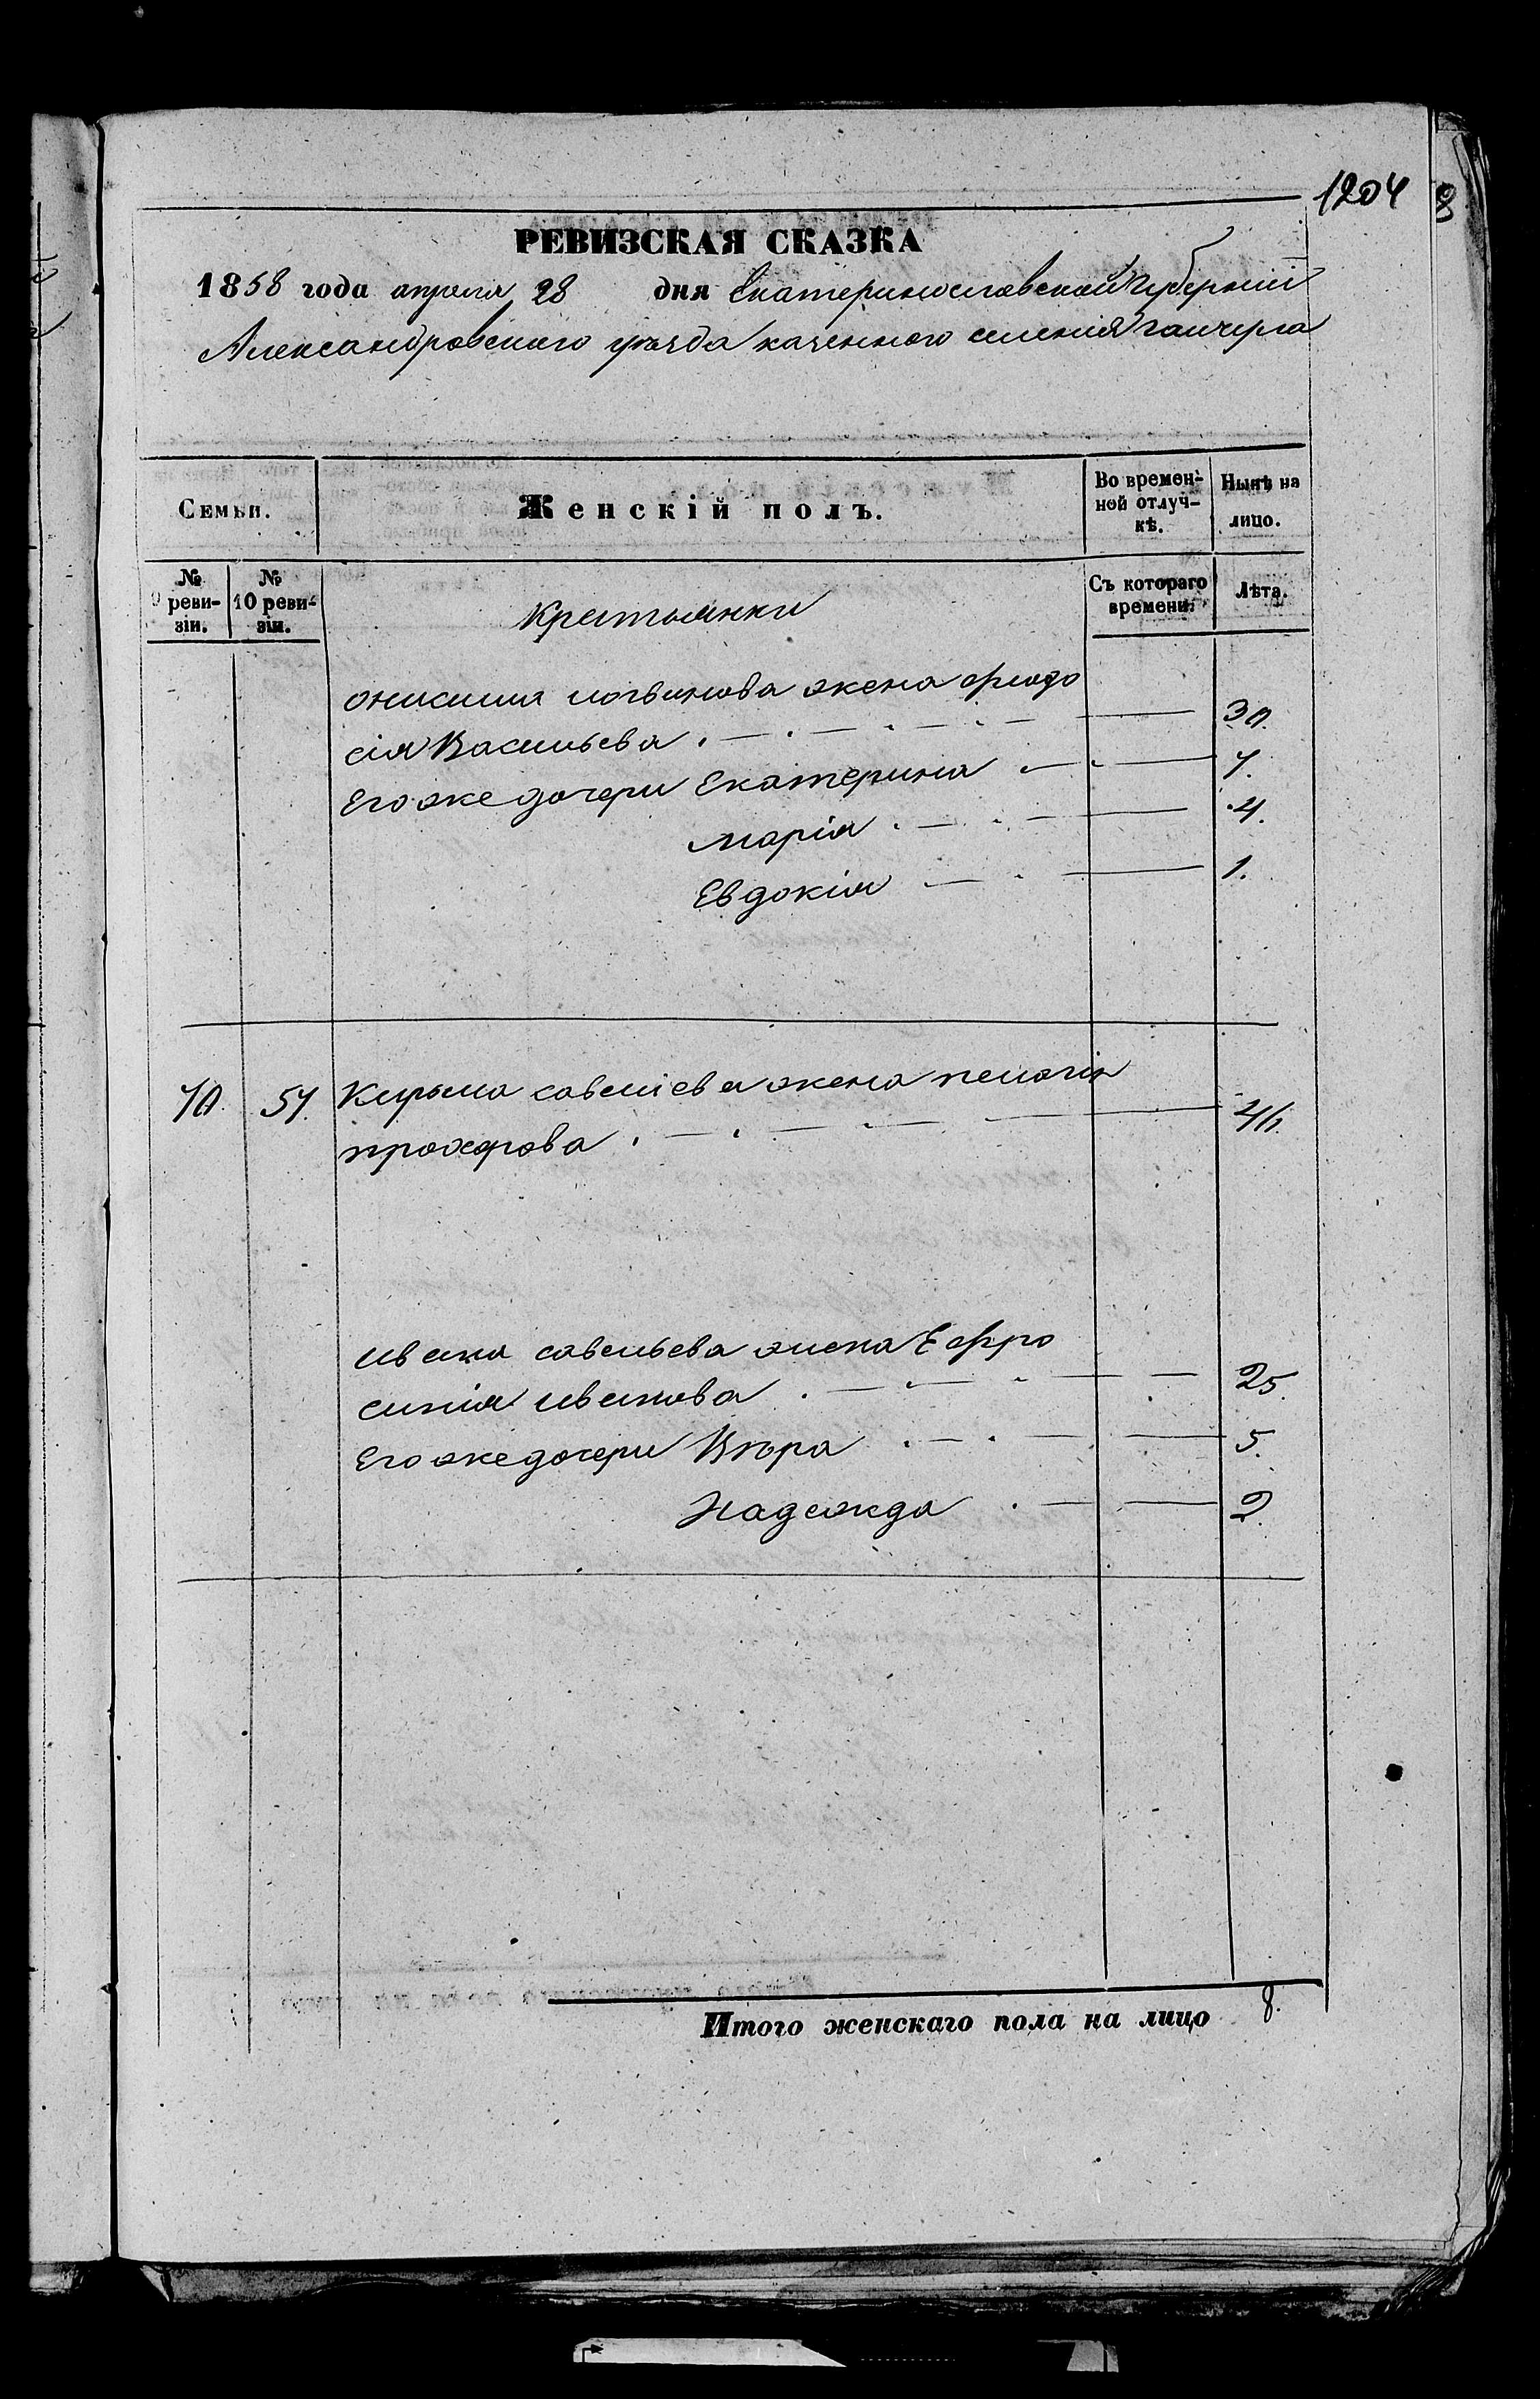 1204
РЕВИЗСКАЯ СКАЗКА
1858 года апреля 28 дня Екатеринославской Губернии
Александровского уѣзда казенного селения гайчура
Семьи.
Женскій полъ.
Во времен-ной отлуч-кѣ.
Нынѣ на лицо.
№ 9 реви-зіи.
№ 10 реви-зіи.
Крестьянки
Съ котораго времени.
Лѣта.
онисима логвинова жена феодо
сія Васильева 30.
Его же дочери Екатерина 7.
марія 4.
Евдокія 1.
70. 57. Кирыла савеліева жена пелагія
прохорова 46.
ивана савельева жена Ефро
синія иванова 25.
Его же дочери Вѣра 5.
Надежда 2.
Итого женскаго пола на лицо 8.